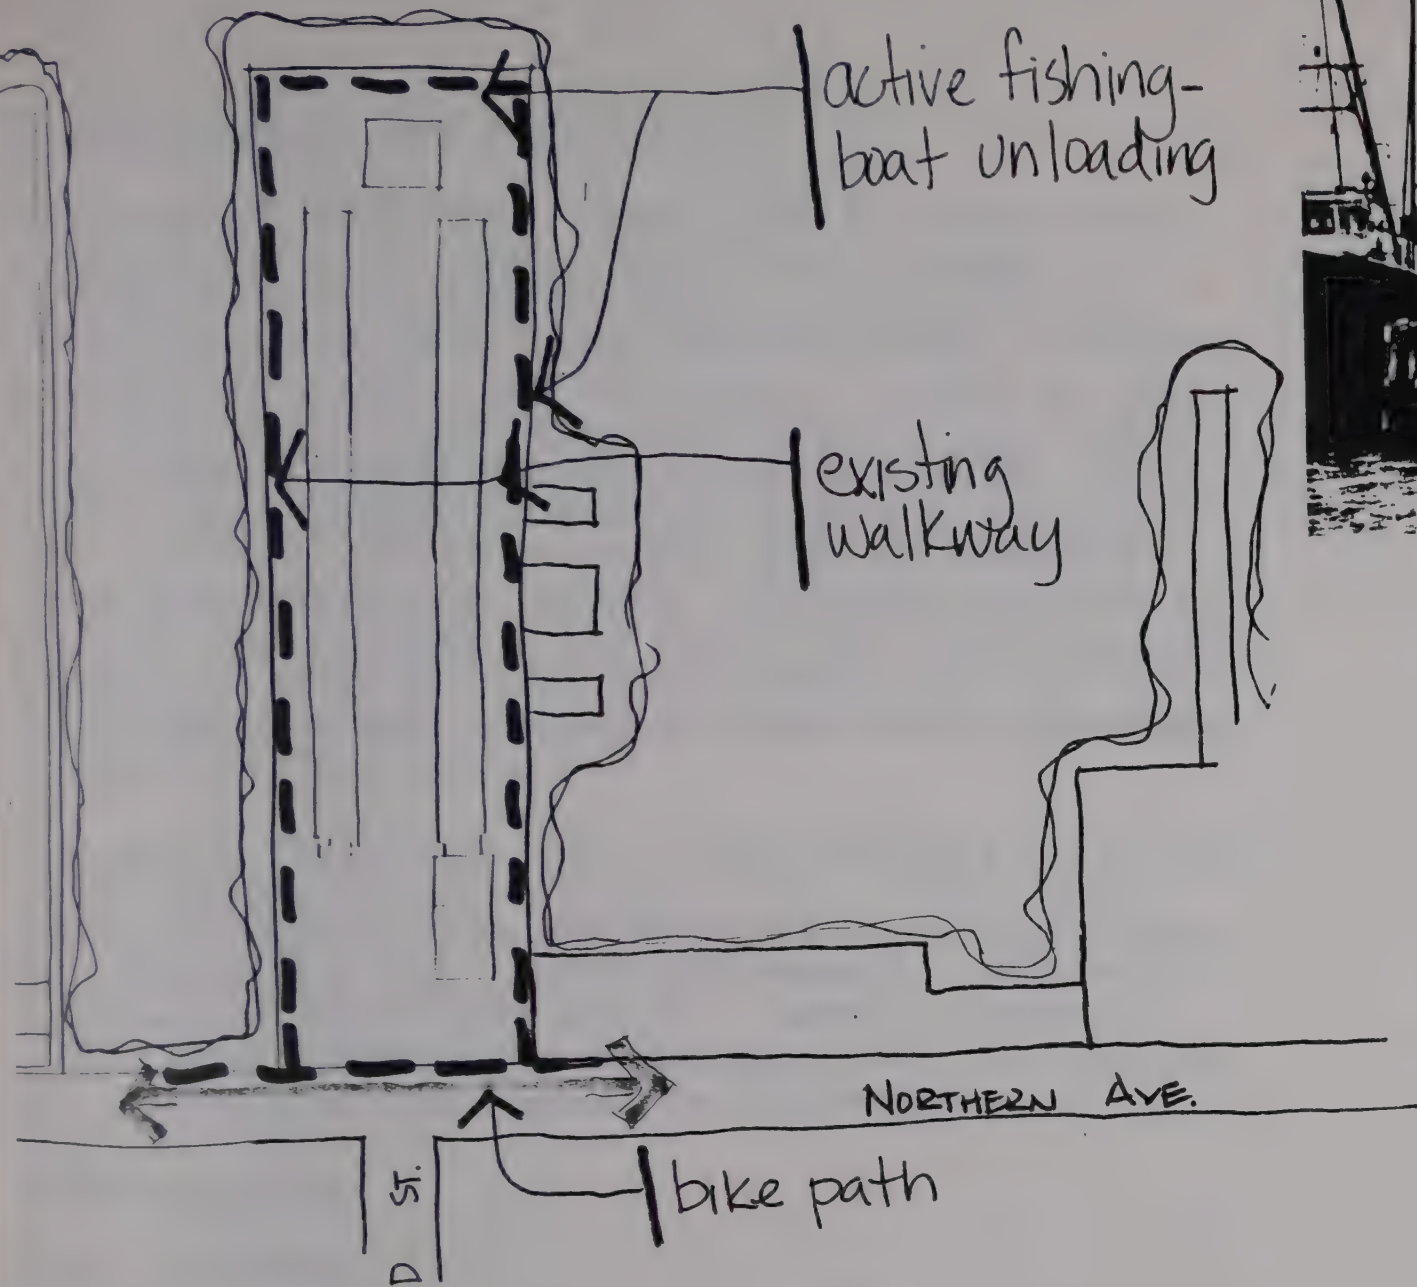 active fishing-
boat unloading
existing
walkway
NORTHERN AVE.
bike path
D ST.